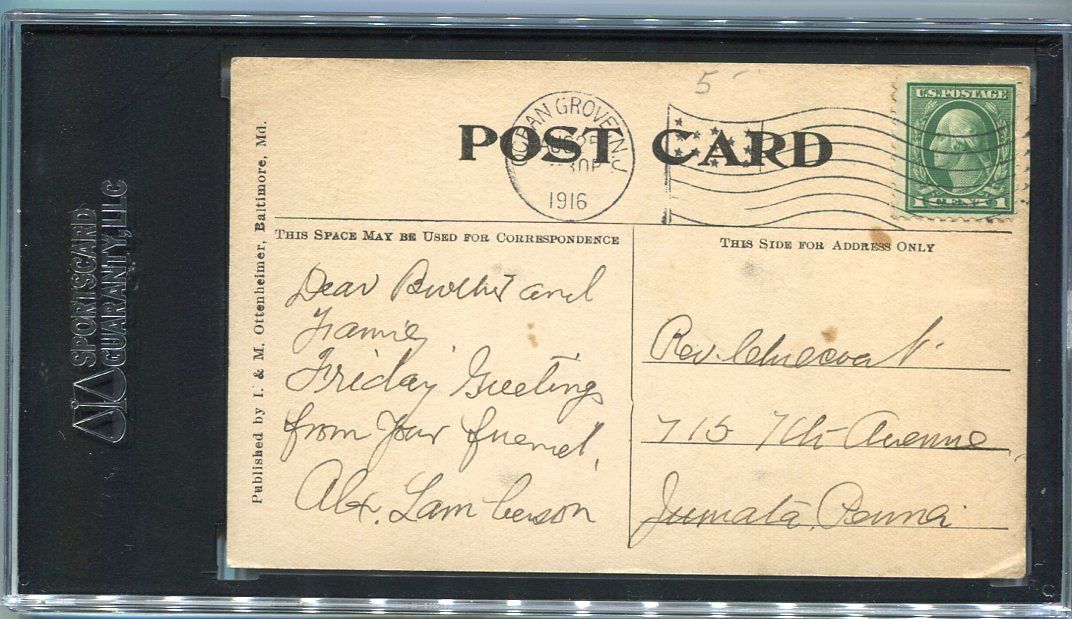 SGC
SPORTSCARD
GUARANTY, LLC
Published by I. & M. Ottenheimer, Baltimore, Md.
5
POST CARD
OCEAN GROVE N.J.
AUG 25
30P
1916
U.S. POSTAGE
1 CENT 1
THIS SPACE MAY BE USED FOR CORRESPONDENCE
THIS SIDE FOR ADDRESS ONLY
Dear Brother and
Friday Greetings
from your friend,
Alx. Lamberson
Rev.
715 7th Avenue,
Juniata, Penna